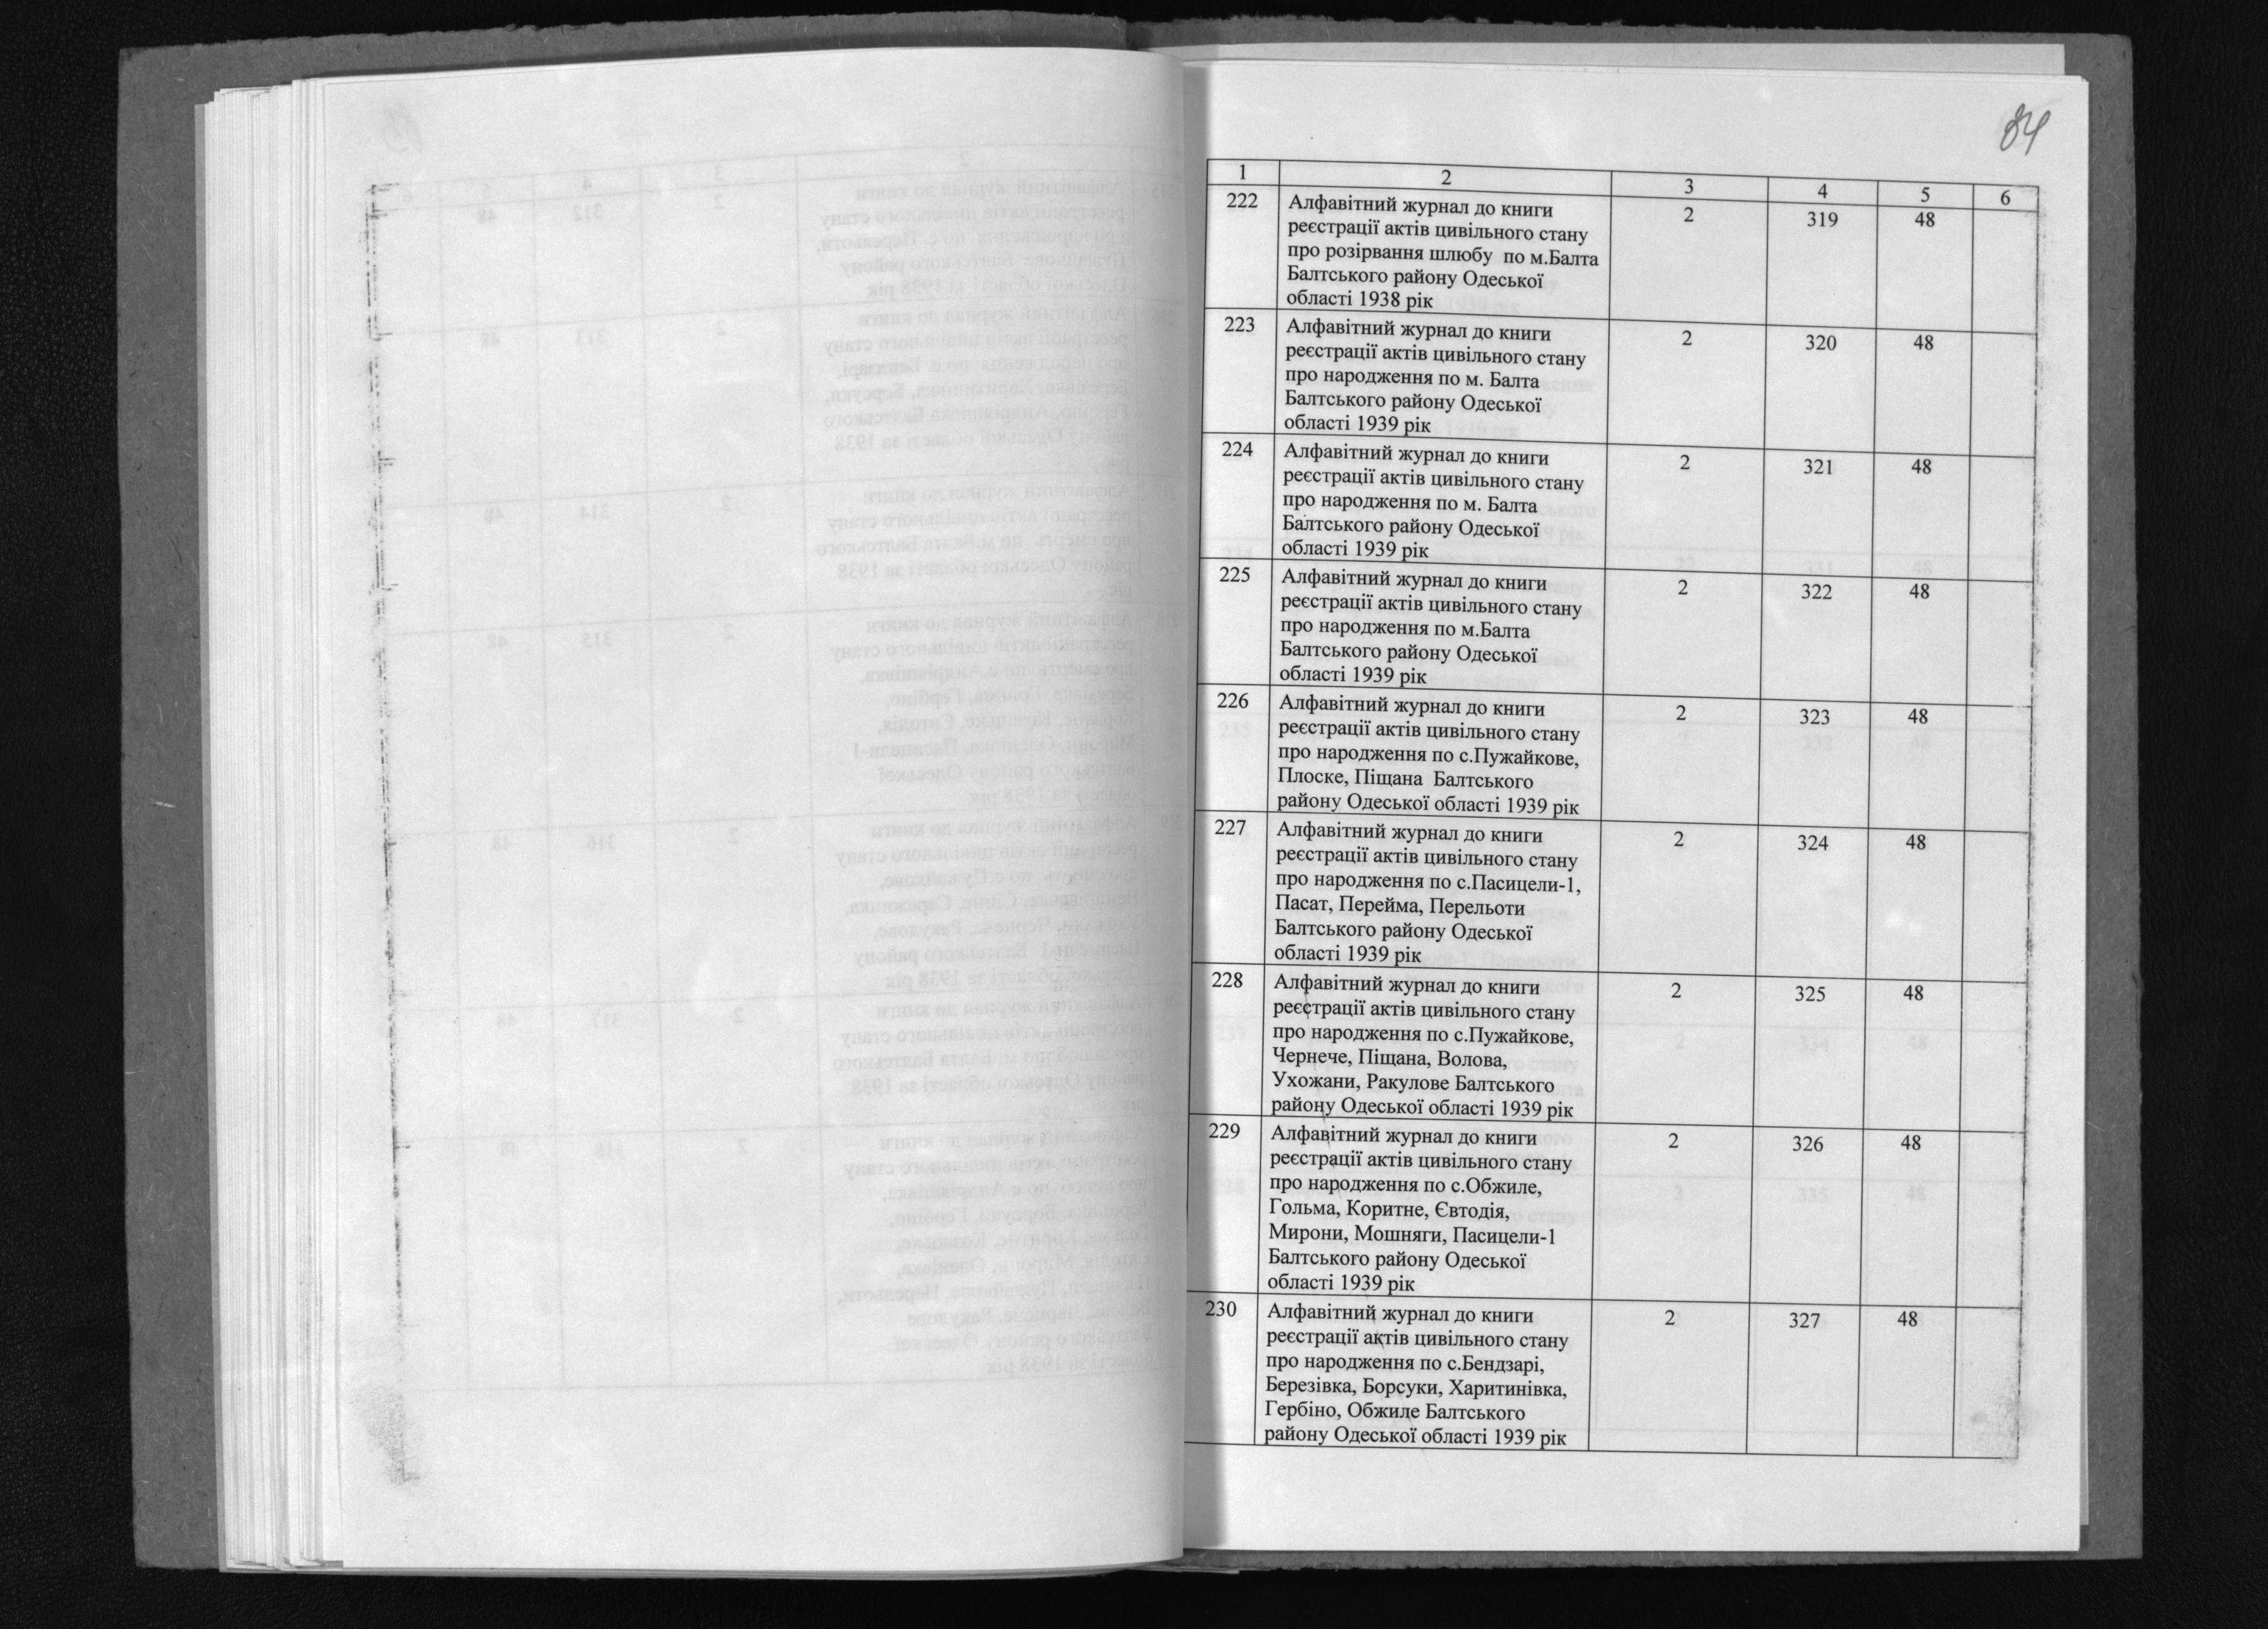 84
1 2 3 4 5 6
222 Алфавітний журнал до книги 2 319 48
реєстрації актів цивільного стану
про розірвання шлюбу по м.Балта
Балтського району Одеської
області 1938 рік
223 Алфавітний журнал до книги 2 320 48
реєстрації актів цивільного стану
про народження по м. Балта
Балтського району Одеської
області 1939 рік
224 Алфавітний журнал до книги 2 321 48
реєстрації актів цивільного стану
про народження по м. Балта
Балтського району Одеської
області 1939 рік
225 Алфавітний журнал до книги 2 322 48
реєстрації актів цивільного стану
про народження по м.Балта
Балтського району Одеської
області 1939 рік
226 Алфавітний журнал до книги 2 323 48
реєстрації актів цивільного стану
про народження по с.Пужайкове,
Плоске, Піщана Балтського
району Одеської області 1939 рік
227 Алфавітний журнал до книги 2 324 48
реєстрації актів цивільного стану
про народження по с.Пасицели-1,
Пасат, Перейма, Перельоти
Балтського району Одеської
області 1939 рік
228 Алфавітний журнал до книги 2 325 48
реєстрації актів цивільного стану
про народження по с.Пужайкове,
Чернече, Піщана, Волова,
Ухожани, Ракулове Балтського
району Одеської області 1939 рік
229 Алфавітний журнал до книги 2 326 48
реєстрації актів цивільного стану
про народження по с.Обжиле,
Гольма, Коритне, Євтодія,
Мирони, Мошняги, Пасицели-1
Балтського району Одеської
області 1939 рік
230 Алфавітний журнал до книги 2 327 48
реєстрації актів цивільного стану
про народження по с.Бендзарі,
Березівка, Борсуки, Харитинівка,
Гербіно, Обжиле Балтського
району Одеської області 1939 рік